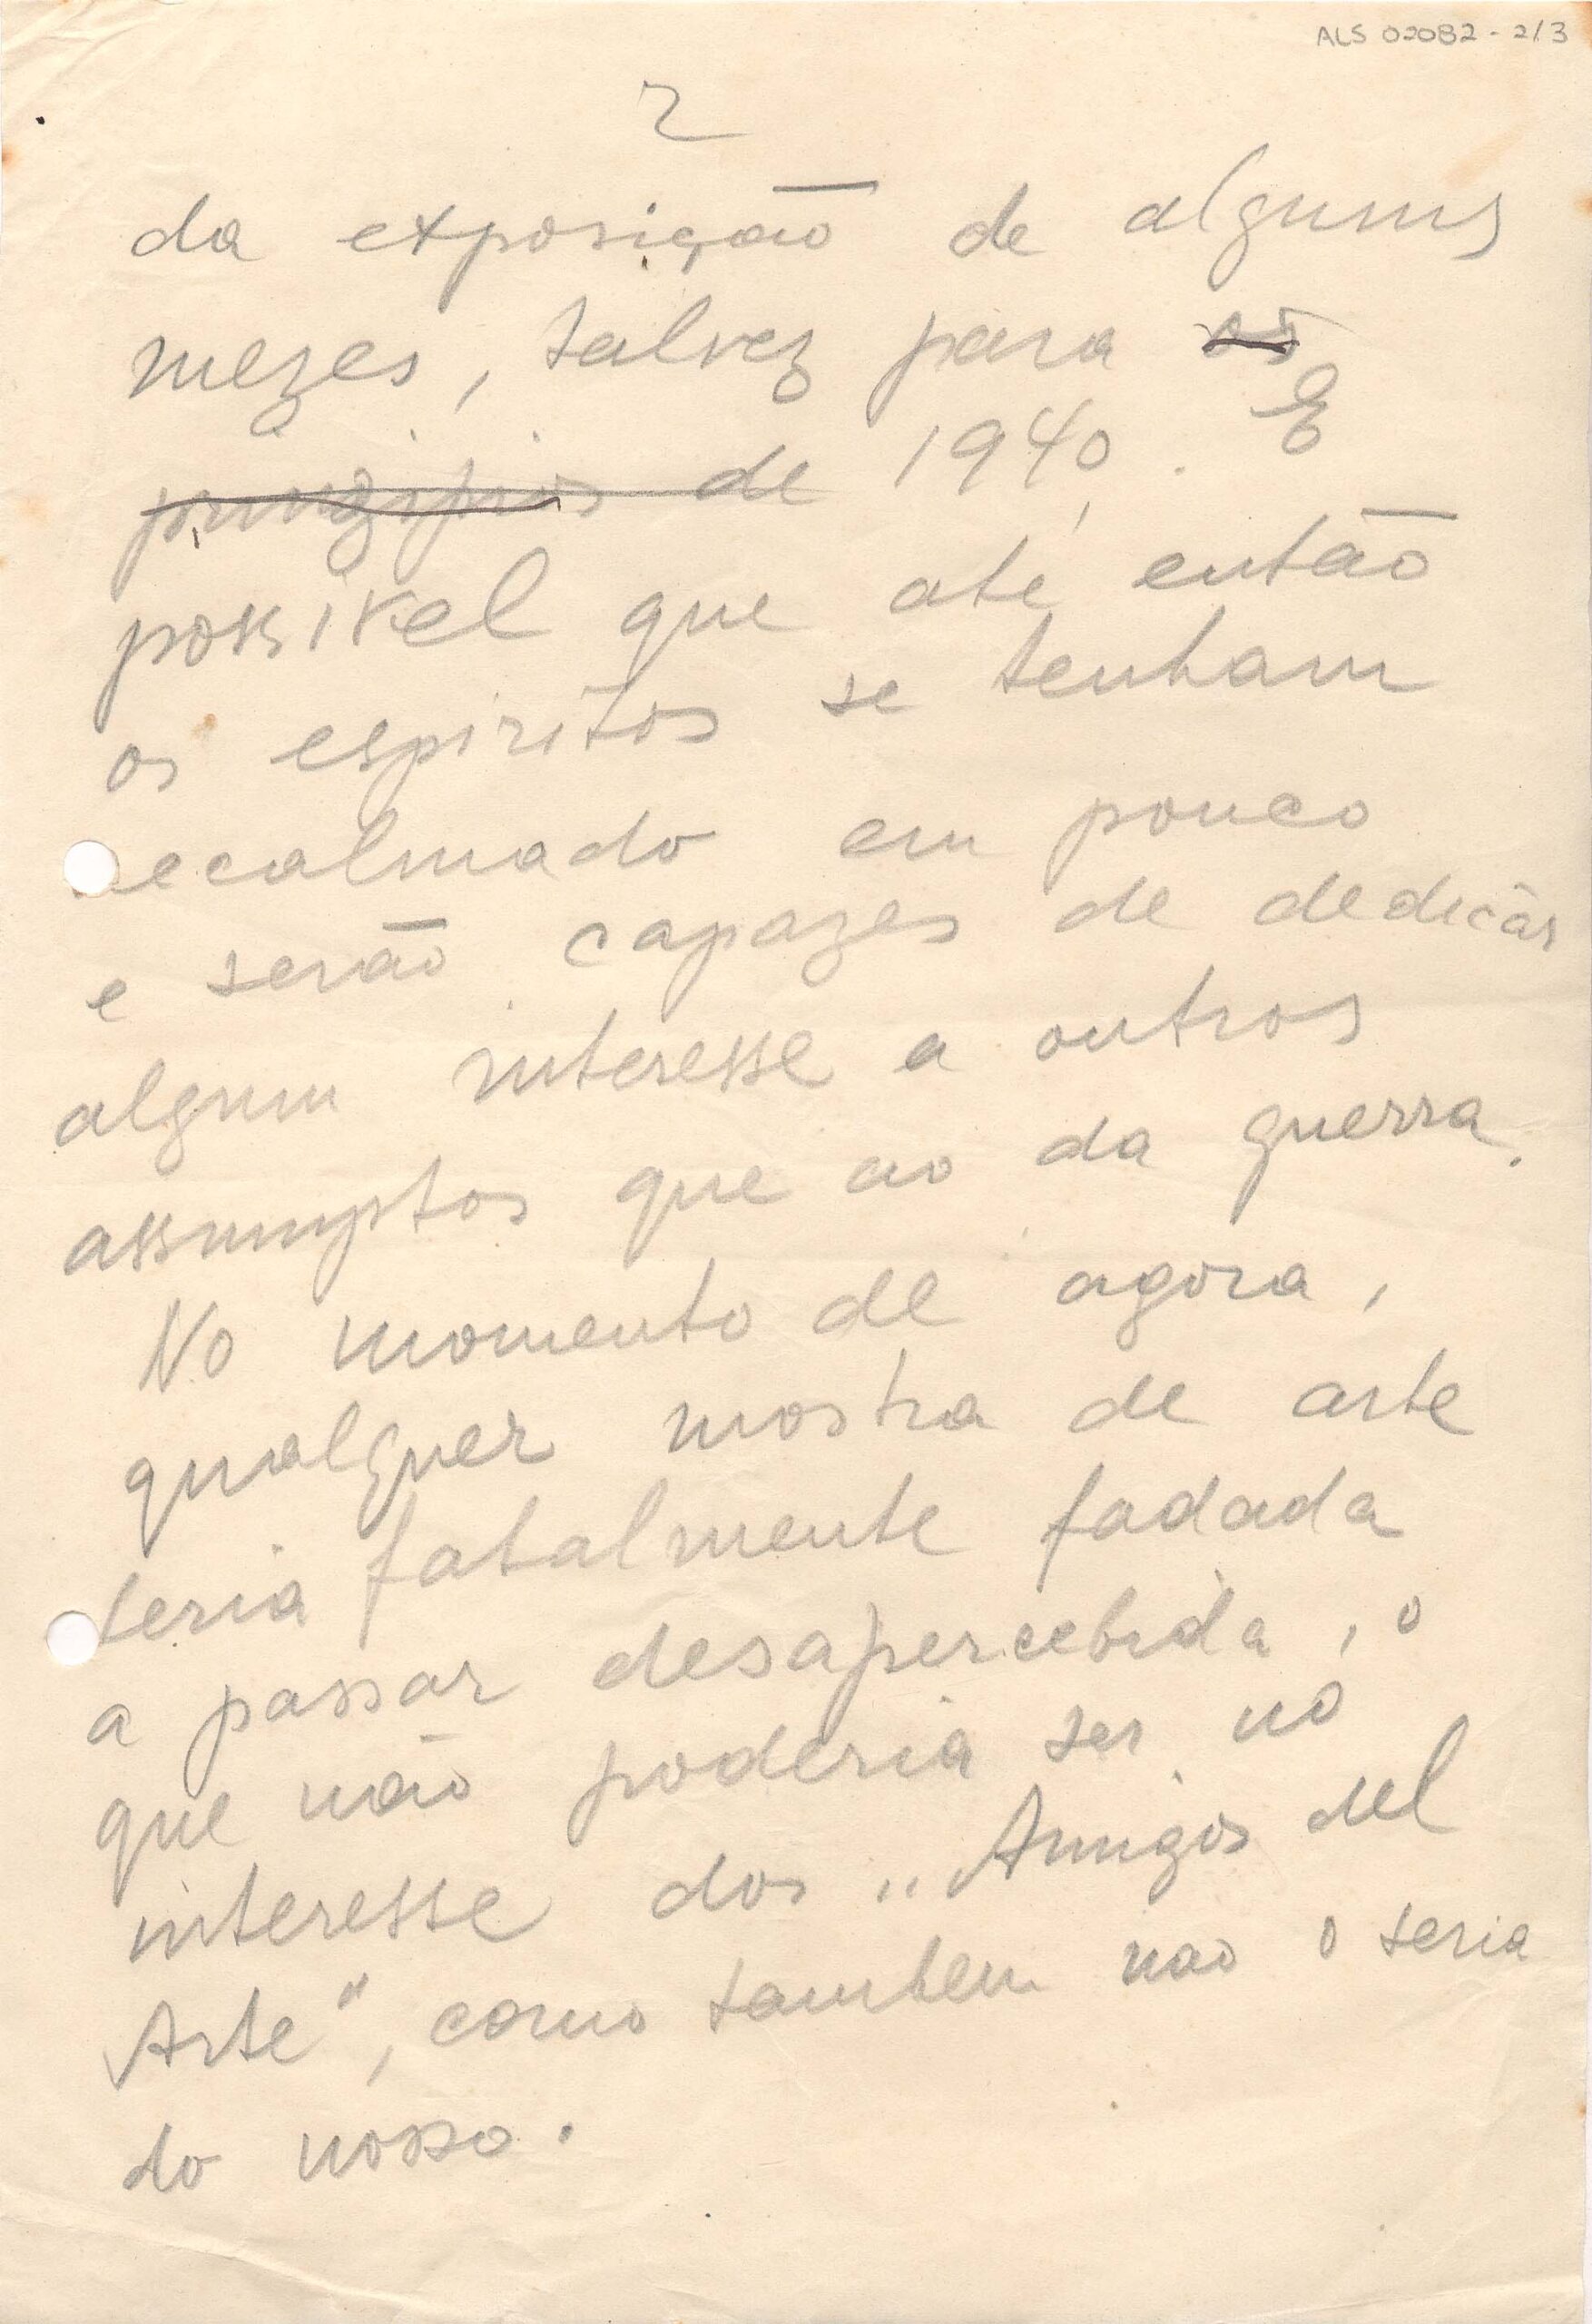 ALS 02082 - 2/3
2
da exposição de alguns
mezes, talvez para os
principios de 1940. E
possivel que até então
os espiritos se tenham
ecalmado em pouco
e serão capazes de dedicar
algum interesse a outros
assumptos que ao da guerra.
No momento de agora,
qualquer mostra de arte
seria fatalmente fadada
a passar desapercebida, o
que não poderia ser no
interesse dos „Amigos del
Arte", como tambem nao o seria
do nosso.